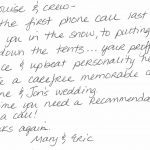 ouise & crew-
the first phone call last
you in the snow, to putting
down the tents... your prof
ce & upbeat personality he
e a carefree memorable
ne & Jon's wedding
ime you need a recommenda
a call!
ks again.
Mary & Eric